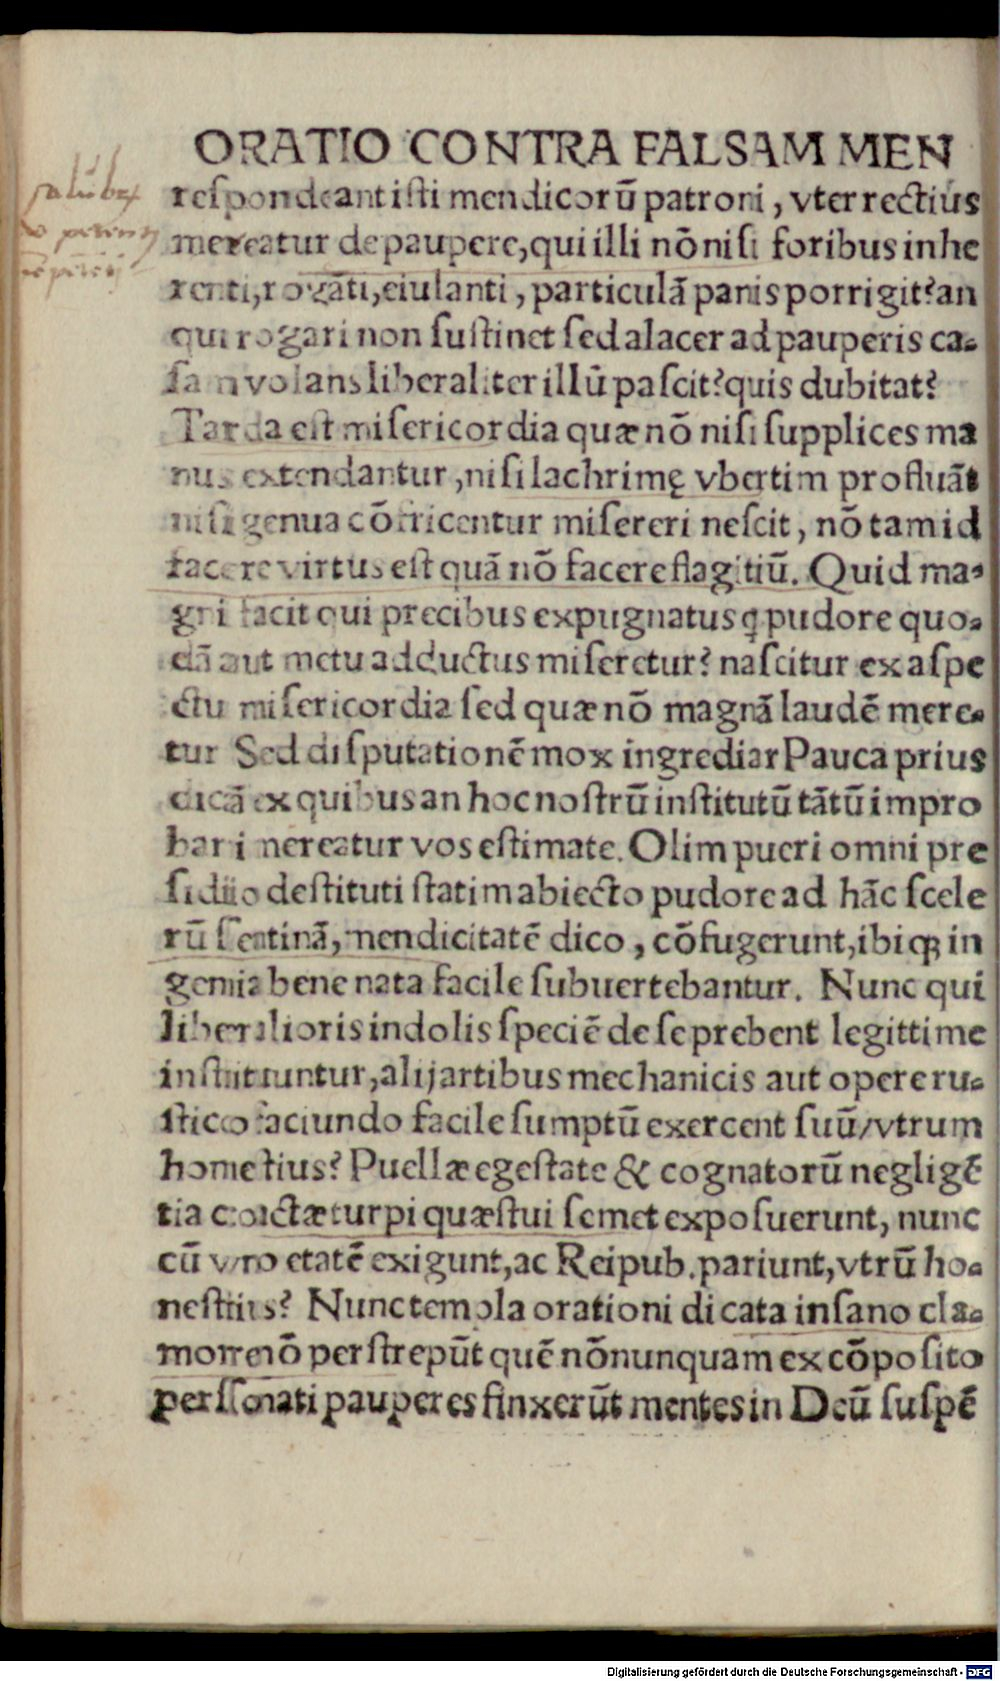 ORATIO CONTRA FALSAM MEN
respondeant isti mendicorū patroni, vter rectius
mereatur de paupere, qui illi nō nisi foribus inhe
renti, rogāti, eiulanti, particulā panis porrigit? an
qui rogari non sustinet sed alacer ad pauperis ca-
sam volans liberaliter illū pascit? quis dubitat?
Tarda est misericordia quæ nō nisi supplices ma
nus extendantur, nisi lachrimę vbertim profluāt
nisi genua cōtricentur misereri nescit, nō tam id
facere virtus est quā nō facere flagitiū. Quid ma-
gni facit qui precibus expugnatus q̄ pudore quo-
dā aut metu adductus miseretur? nascitur ex aspe
ctu misericordia sed quæ nō magnā laudē mere-
tur Sed disputationē mox ingrediar Pauca prius
dicā ex quibus an hoc nostrū institutū tātū impro
bari mereatur vos estimate. Olim pueri omni pre
sidiio destituti statim abiecto pudore ad hāc scele
rū sentinā, mendicitatē dico, cōfugerunt, ibiq; in
genia bene nata facile subuertebantur. Nunc qui
liberalioris indolis speciē de se prebent legittime
instituuntur, alij artibus mechanicis aut opere ru-
stico faciundo facile sumptū exercent suū/vtrum
honestius? Puellæ egestate & cognatorū negligē
tia coactæ turpi quæstui semet exposuerunt, nunc
cū viro etatē exigunt, ac Reipub. pariunt, vtrū ho-
nestius? Nunc templa orationi dicata insano cla-
more nō perstrepūt quē nōnunquam ex cōposito
personati pauperes finxerūt mentes in Deū suspē
Digitalisierung gefördert durch die Deutsche Forschungsgemeinschaft - DFG